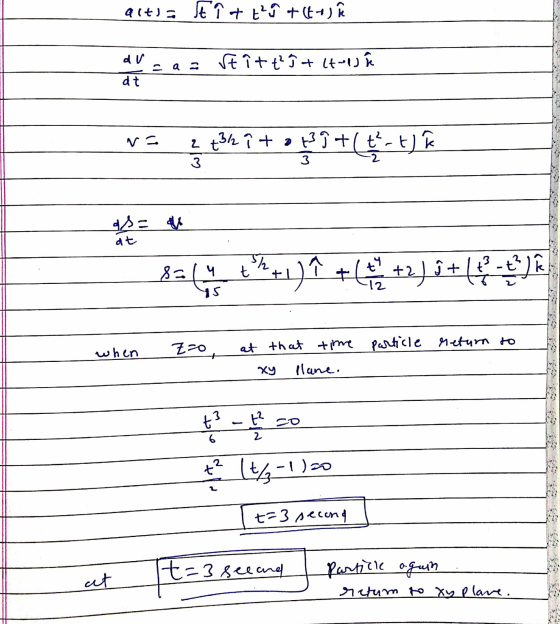 a(t) = √t î + t² ĵ + (t-1) k̂
dv/dt = a = √t î + t² ĵ + (t-1) k̂
v = 2/3 t^3/2 î + t³/3 ĵ + (t²/2 - t) k̂
ds/dt = v
s = (4/15 t^5/2 + 1) î + (t⁴/12 + 2) ĵ + (t³/6 - t²/2) k̂
when Z=0, at that time particle return to
xy plane.
t³/6 - t²/2 = 0
t²/2 (t/3 - 1) = 0
t = 3 second
at t = 3 second particle again
return to xy plane.